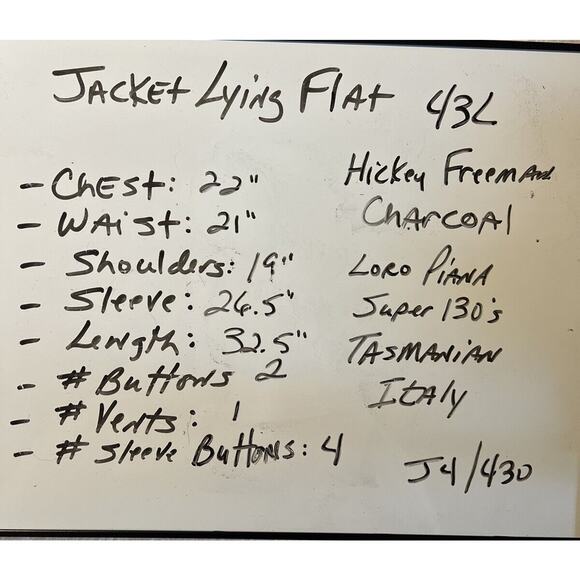 Jacket Lying Flat 43L
- Chest: 22"
- Waist: 21"
- Shoulders: 19"
- Sleeve: 26.5"
- Length: 32.5"
- # Buttons 2
- # Vents: 1
- # Sleeve Buttons: 4
Hickey Freeman
Charcoal
Loro Piana
Super 130's
Tasmanian
Italy
J4/430